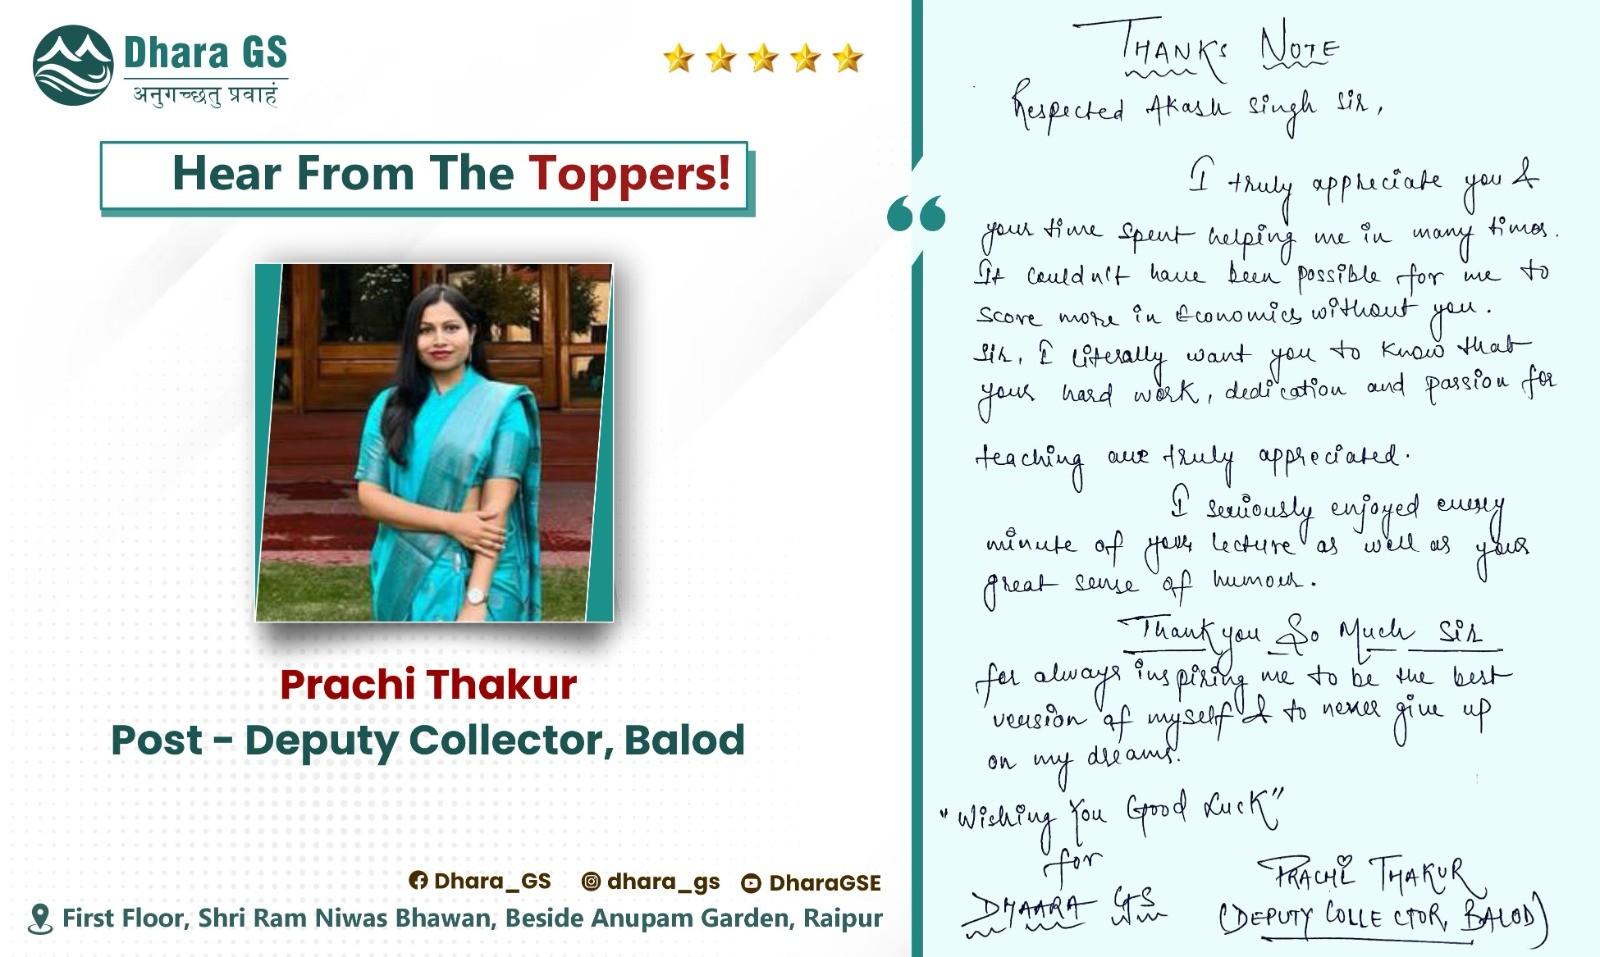 Dhara GS
अनुगच्छतु प्रवाहं
Hear From The Toppers!
Prachi Thakur
Post - Deputy Collector, Balod
Dhara_GS dhara_gs DharaGSE
First Floor, Shri Ram Niwas Bhawan, Beside Anupam Garden, Raipur
THANKS NOTE
Respected Akash Singh Sir,
I truly appreciate you &
your time spent helping me in many times.
It couldn't have been possible for me to
score more in Economics without you.
Sir, I literally want you to know that
your hard work, dedication and passion for
teaching are truly appreciated.
I seriously enjoyed every
minute of your lecture as well as your
great sense of humour.
Thank you So Much Sir
for always inspiring me to be the best
version of myself & to never give up
on my dreams.
"Wishing You Good Luck"
for
DHAARA GS
PRACHI THAKUR
(DEPUTY COLLECTOR, BALOD)